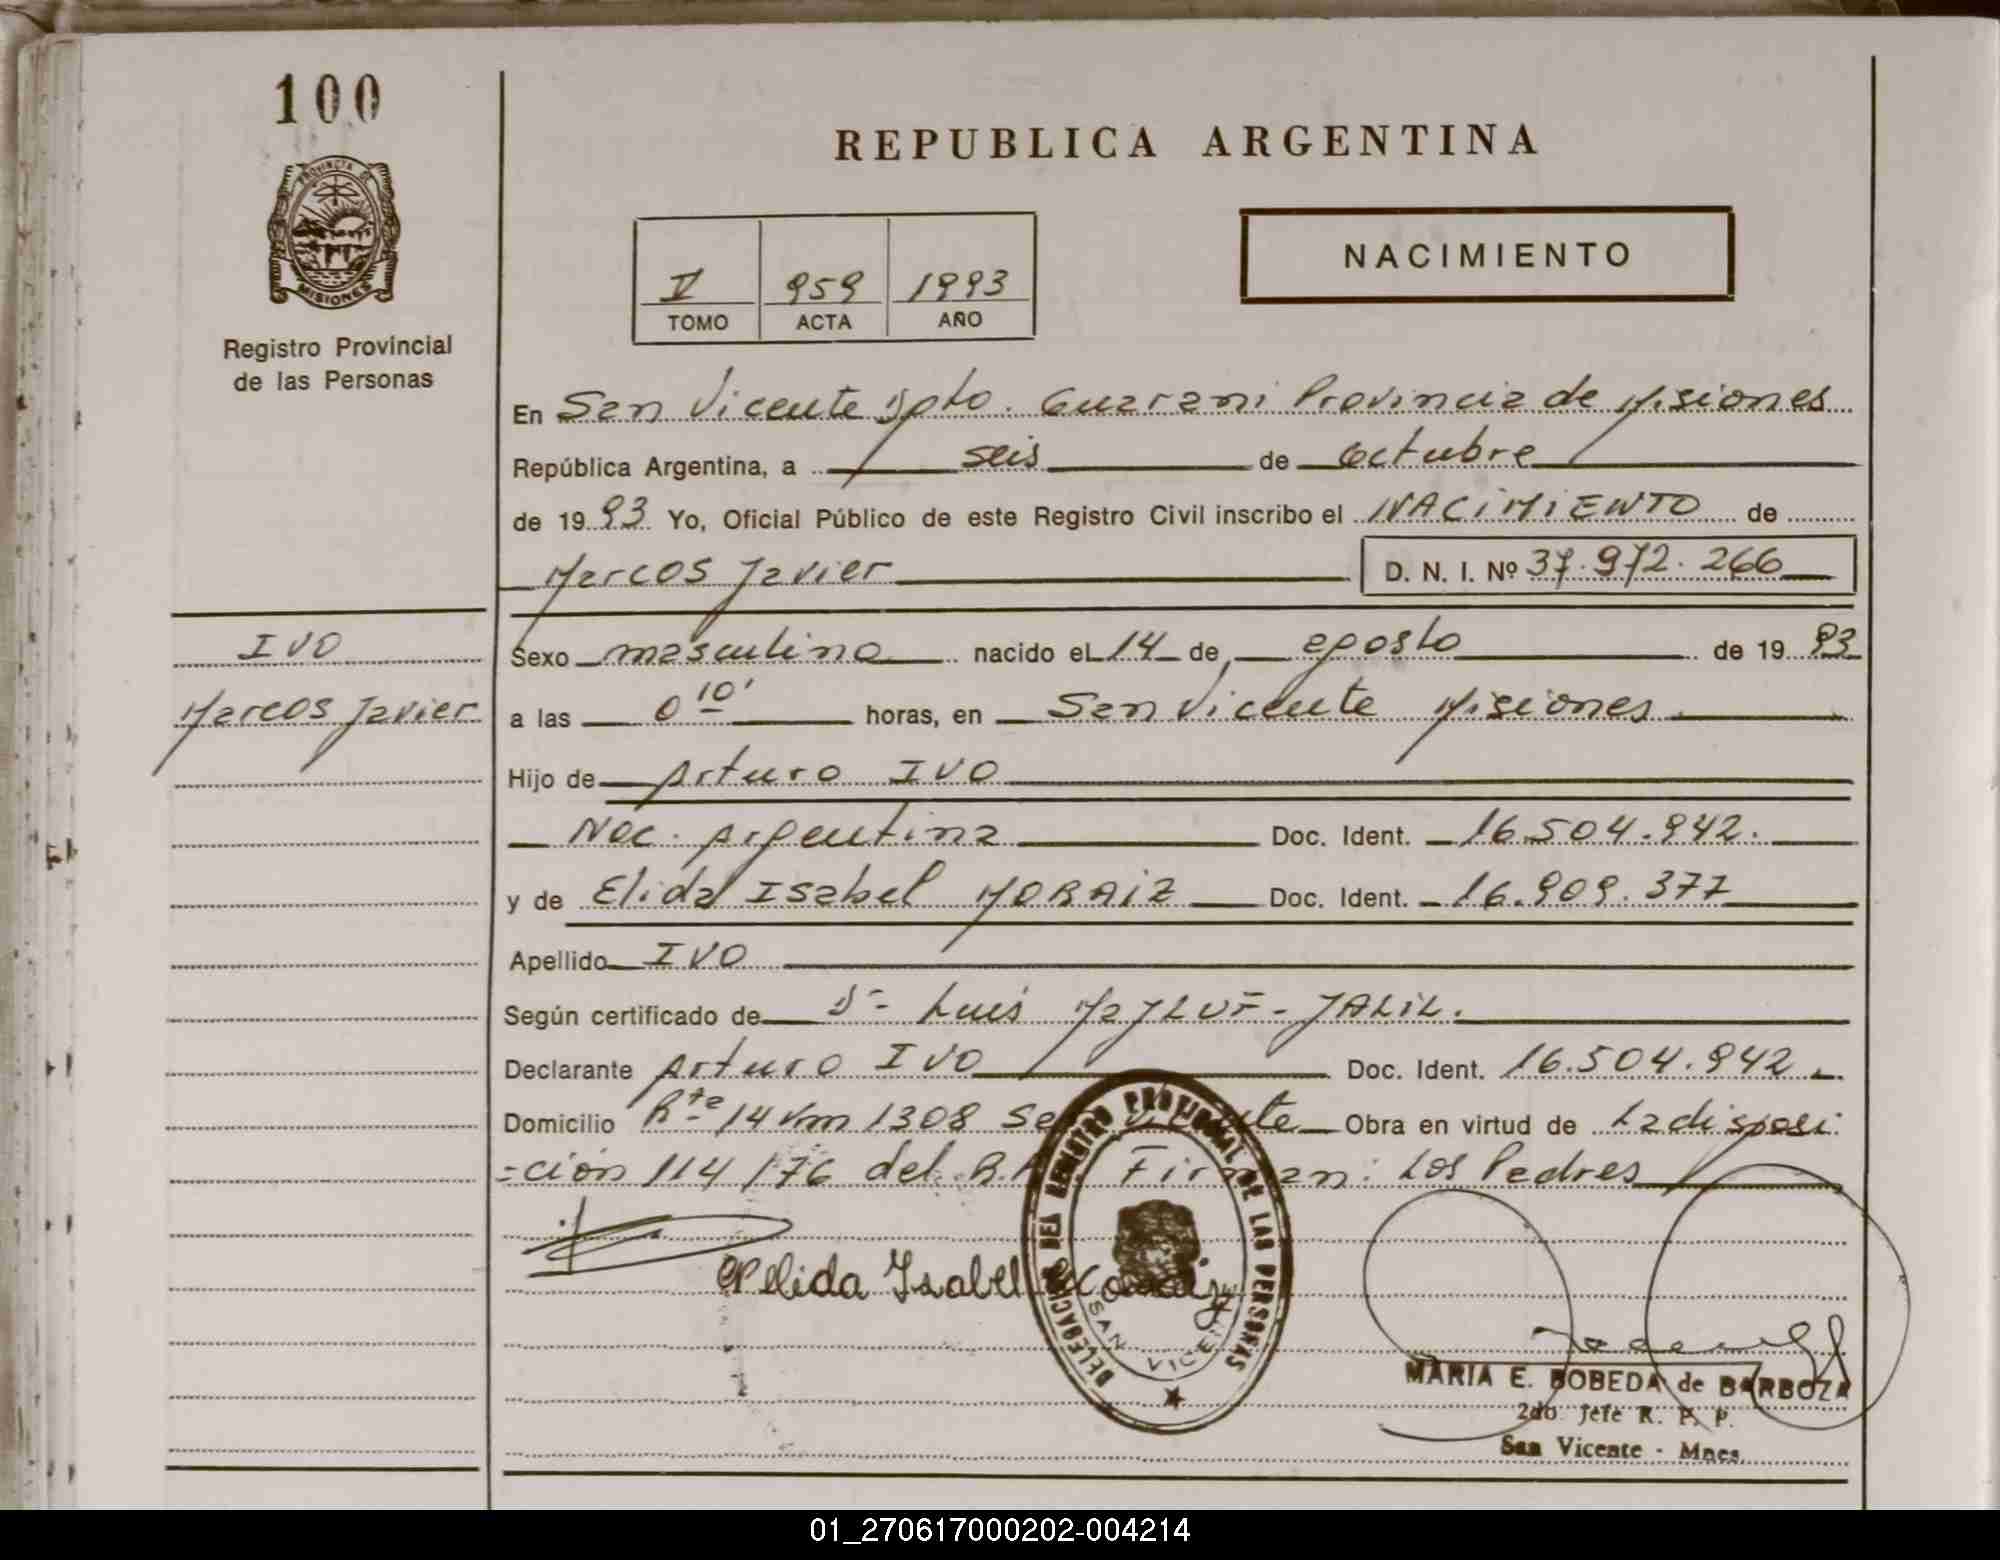 100
PROVINCIA DE
MISIONES
Registro Provincial
de las Personas
REPUBLICA ARGENTINA
V 959 1993
TOMO ACTA AÑO
NACIMIENTO
En San Vicente Dpto. Guarani Provincia de Misiones
República Argentina, a seis de octubre
de 1993 Yo, Oficial Público de este Registro Civil inscribo el NACIMIENTO de
Marcos Javier D. N. I. Nº 37.972.266
IVO
Marcos Javier
Sexo masculino nacido el 14 de agosto de 1993
a las 0 10' horas, en San Vicente Misiones
Hijo de Arturo IVO
Nac. Argentina Doc. Ident. 16.504.942.
y de Elida Isabel MORAIZ Doc. Ident. 16.909.377
Apellido IVO
Según certificado de Dr. Luis MAJLUF-JALIL.
Declarante Arturo IVO Doc. Ident. 16.504.942
Domicilio Rta 14 km 1308 San Vicente Obra en virtud de La disposi
=ción 114/76 del Firman: Los Padres
Elida Isabel Moraiz
DELEGACION DEL REGISTRO PROVINCIAL DE LAS PERSONAS
SAN VICENTE
MARIA E. BOBEDA de BARBOZA
2do Jefe R. P. P.
San Vicente - Mnes.
01_270617000202-004214